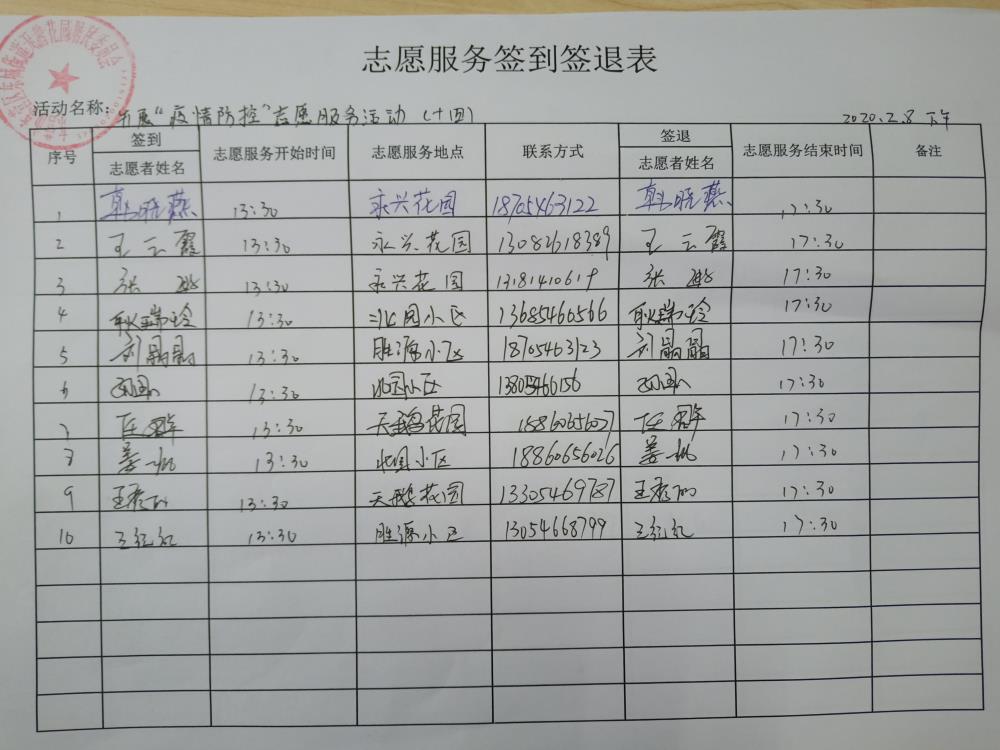 志愿服务签到签退表
活动名称：开展“疫情防控”志愿服务活动（十四） 2020.2.8 下午
序号 签到 志愿者姓名 志愿服务开始时间 志愿服务地点 联系方式 签退 志愿者姓名 志愿服务结束时间 备注
1 韩晓燕 13:30 永兴花园 18705463122 韩晓燕 17:30
2 王云霞 13:30 永兴花园 13082618389 王云霞 17:30
3 张 13:30 永兴花园 13181410619 张 17:30
4 耿瑞玲 13:30 北园小区 13685466566 耿瑞玲 17:30
5 刘晶晶 13:30 胜源小区 18705463123 刘晶晶 17:30
6 13:30 北园小区 17:30
7 任群 13:30 天鹅花园 18860656027 任群 17:30
8 姜 13:30 北园小区 18860656026 姜 17:30
9 王 13:30 天鹅花园 13305469787 王 17:30
10 王红 13:30 胜源小区 13054668799 王红 17:30